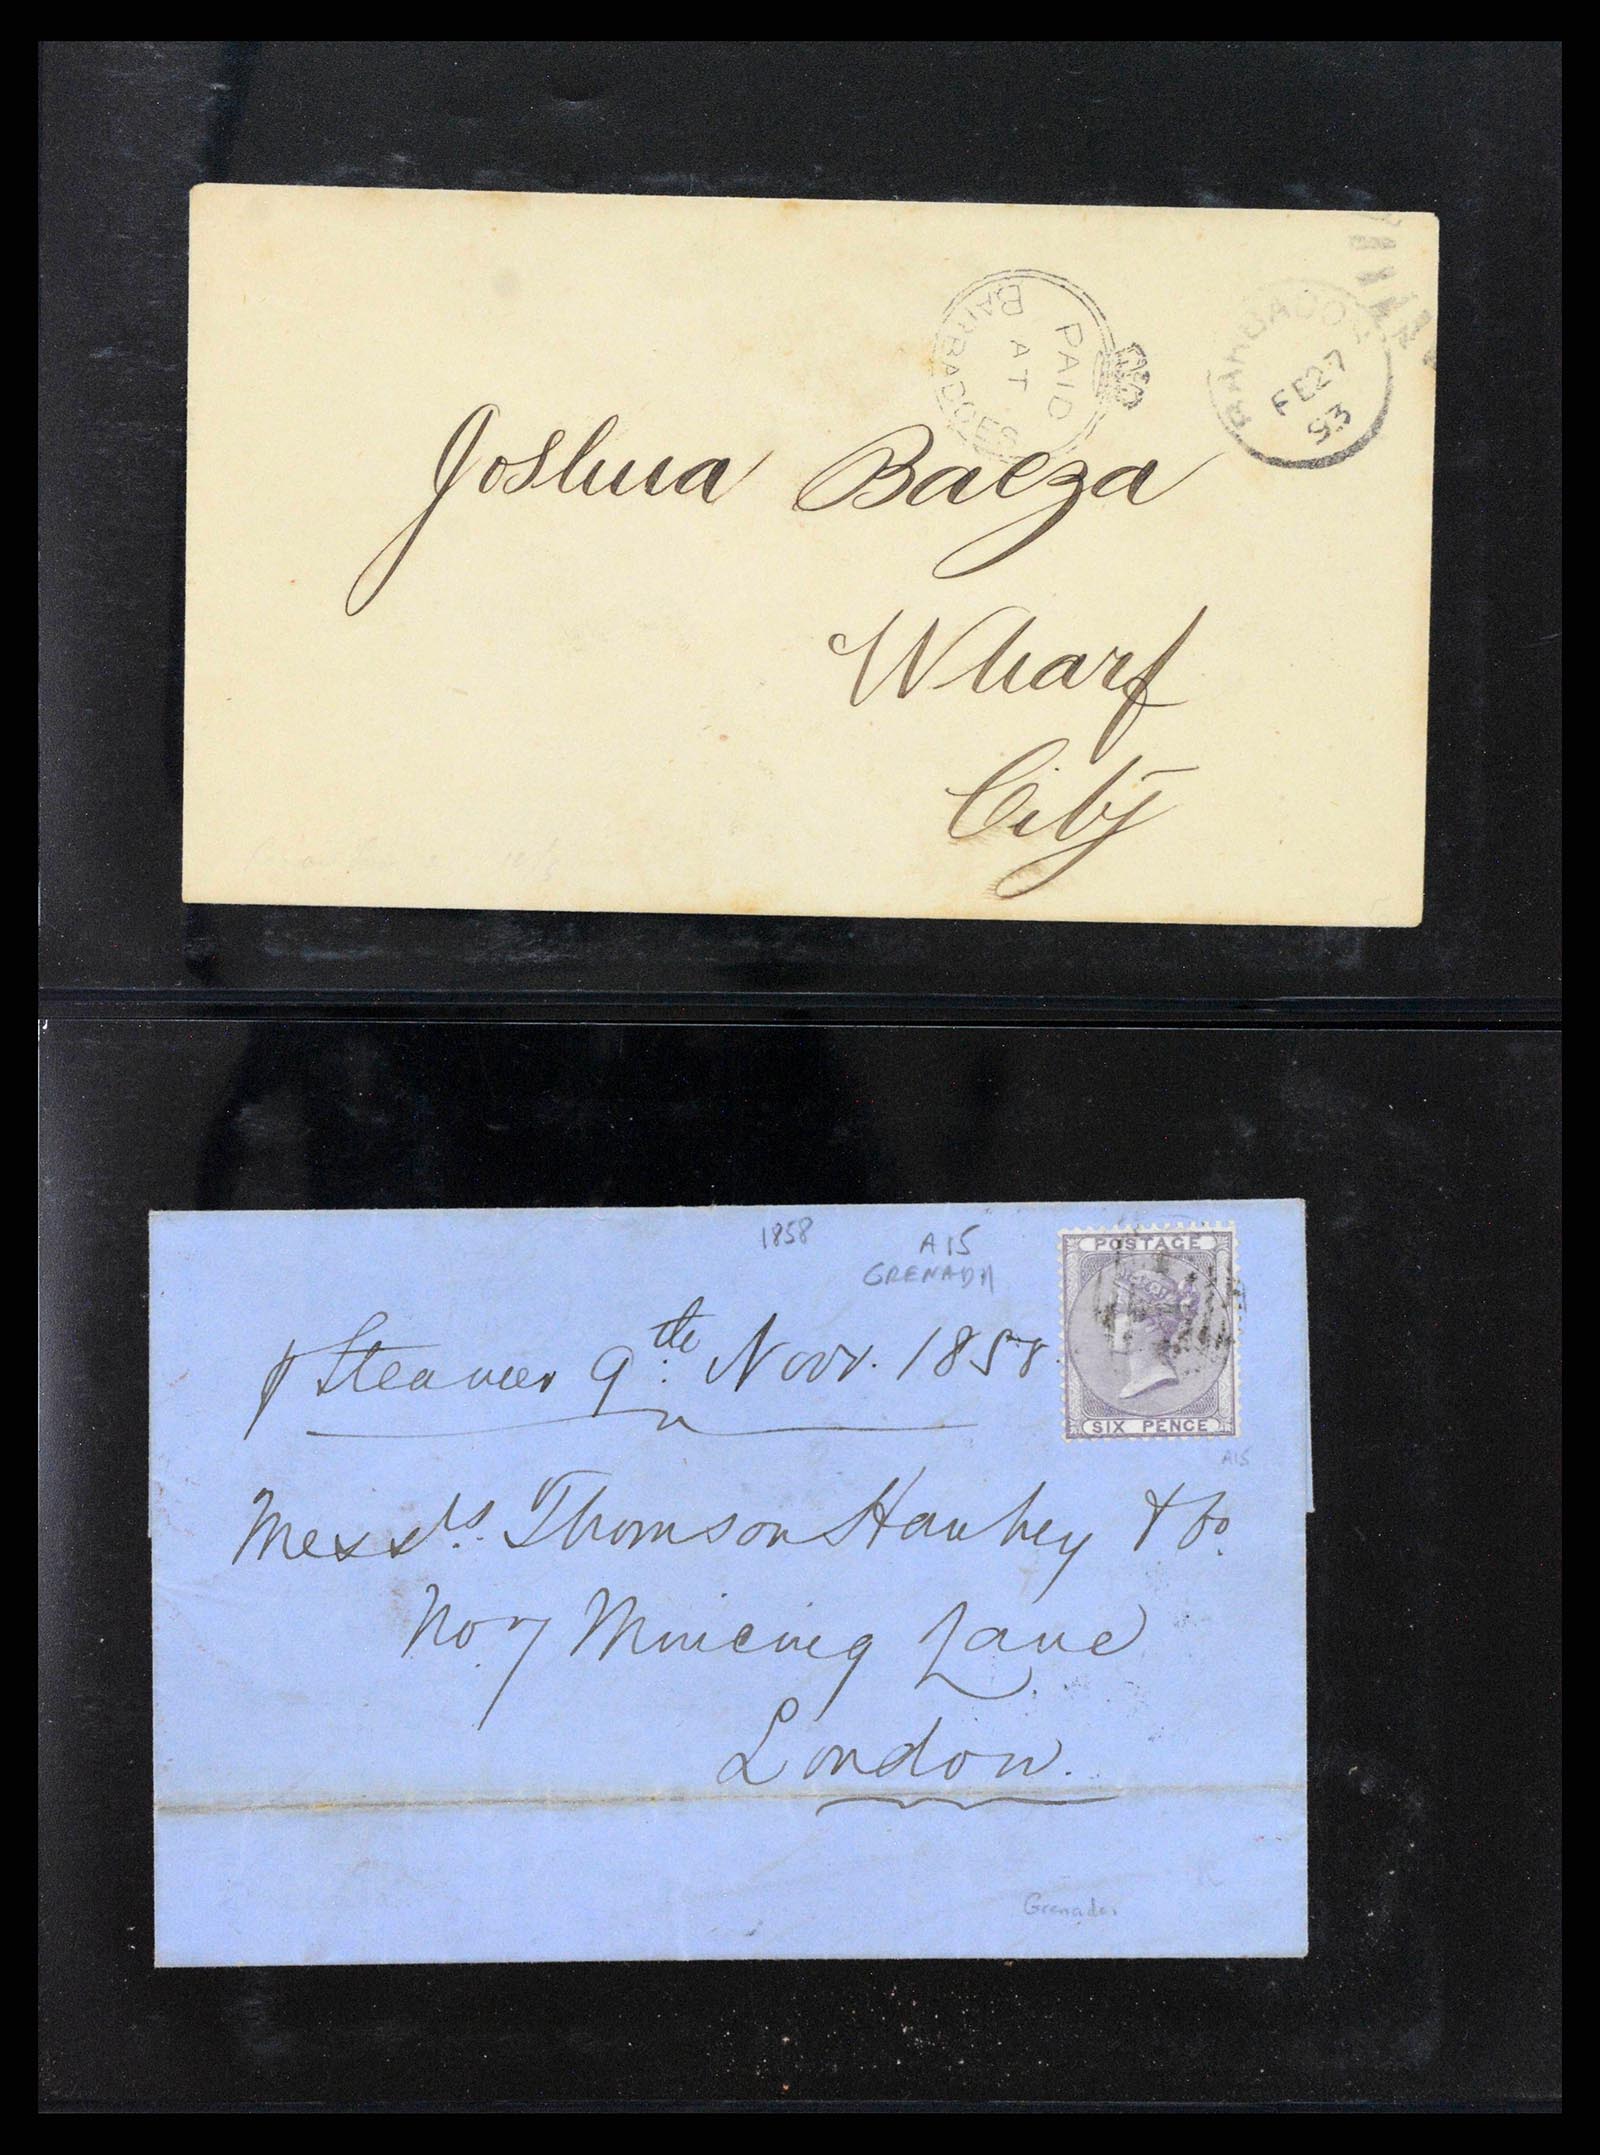 PAID
AT
BARBADOES
BARBADOS
FE 27
93
Joshua Baeza
Wharf
City
1858
A15
GRENADA
POSTAGE
SIX PENCE
A15
p Steamer 9th Novr. 1858.
Messrs. Thomson Hankey & Co.
No 7 Mincing Lane
London.
Grenada